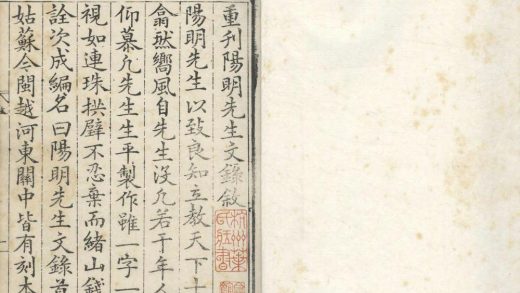 重刊陽明先生文錄敘
陽明先生以致良知立教天下士
翕然嚮風自先生沒凡若干年人
仰慕凡先生生平製作雖一字一
視如連珠拱璧不忍棄而緒山錢
詮次成編名曰陽明先生文錄首
姑蘇今閩越河東關中皆有刻本